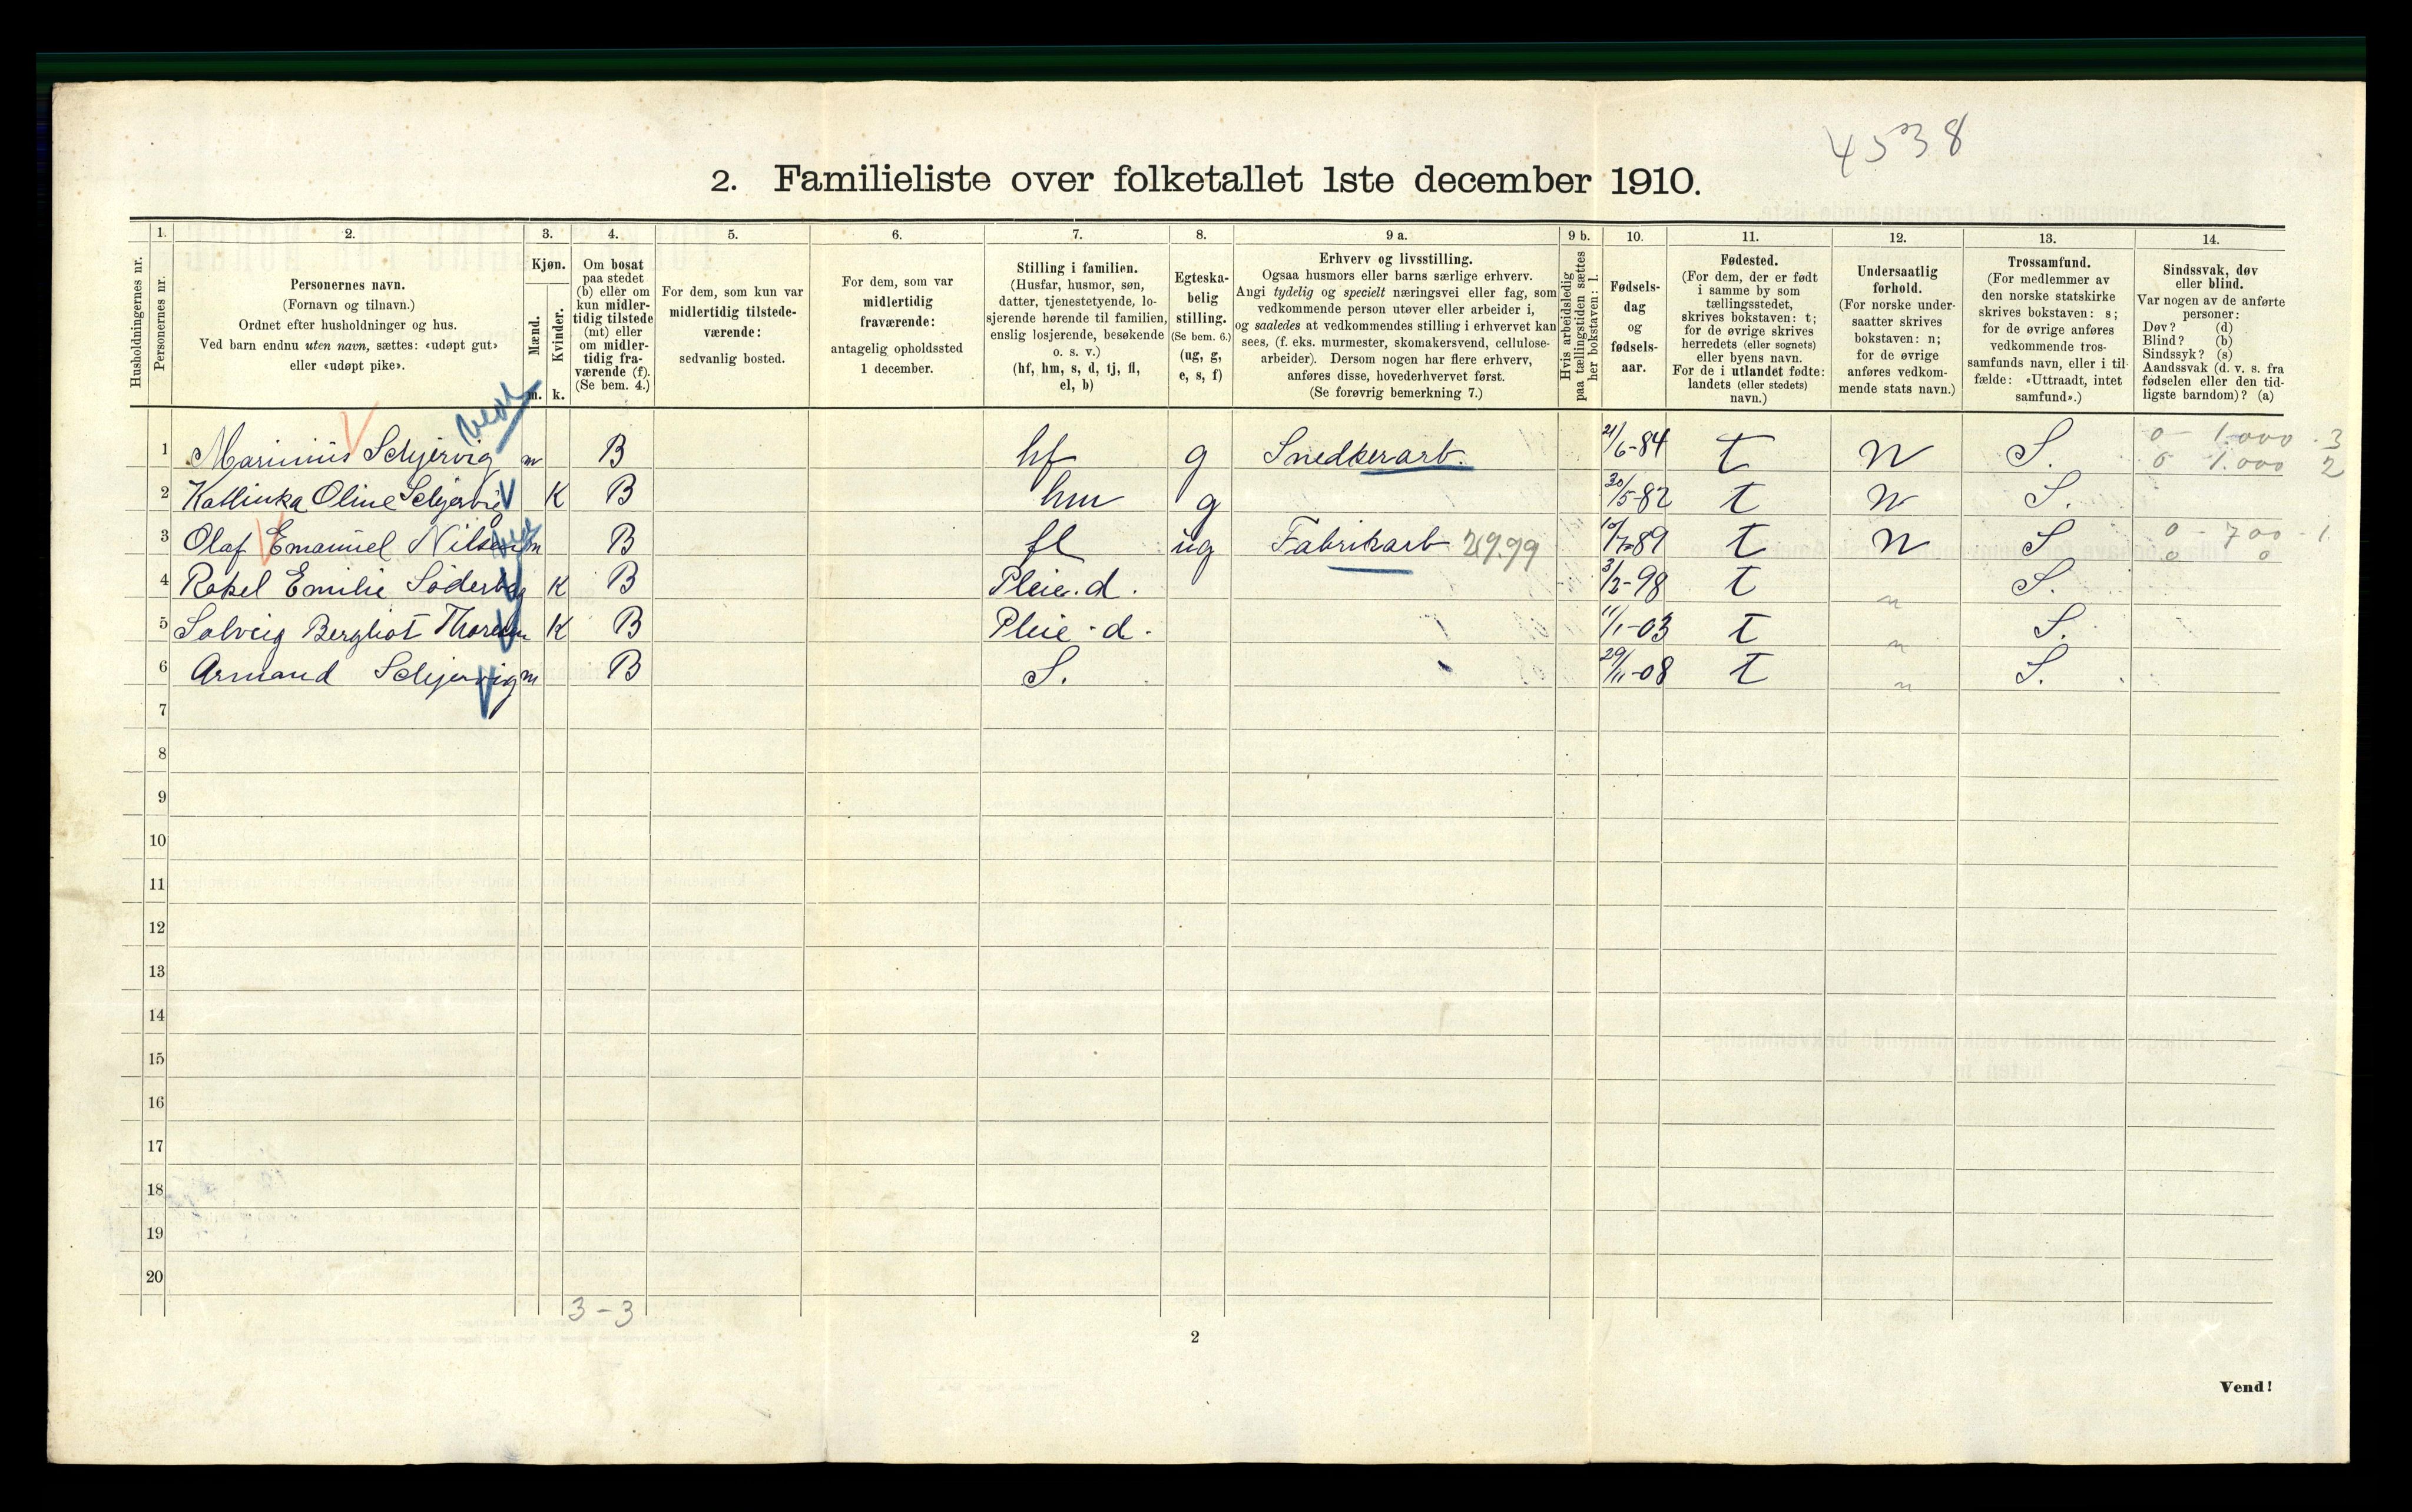 4538
2. Familieliste over folketallet 1ste december 1910.
Husholdningernes nr.
1. Personernes nr.
2. Personernes navn.
(Fornavn og tilnavn.)
Ordnet efter husholdninger og hus.
Ved barn endnu uten navn, sættes: «udøpt gut»
eller «udøpt pike».
3. Kjøn.
Mænd. m.
Kvinder. k.
4. Om bosat
paa stedet
(b) eller om
kun midler-
tidig tilstede
(mt) eller
om midler-
tidig fra-
værende (f).
(Se bem. 4.)
5. For dem, som kun var
midlertidig tilstede-
værende:
sedvanlig bosted.
6. For dem, som var
midlertidig
fraværende:
antagelig opholdssted
1 december.
7. Stilling i familien.
(Husfar, husmor, søn,
datter, tjenestetyende, lo-
sjerende hørende til familien,
enslig losjerende, besøkende
o. s. v.)
(hf, hm, s, d, tj, fl,
el, b)
8. Egteska-
belig
stilling.
(Se bem. 6.)
(ug, g,
e, s, f)
9 a. Erhverv og livsstilling.
Ogsaa husmors eller barns særlige erhverv.
Angi tydelig og specielt næringsvei eller fag, som
vedkommende person utøver eller arbeider i,
og saaledes at vedkommendes stilling i erhvervet kan
sees, (f. eks. murmester, skomakersvend, cellulose-
arbeider). Dersom nogen har flere erhverv,
anføres disse, hovederhvervet først.
(Se forøvrig bemerkning 7.)
9 b. Hvis arbeidsledig
paa tællingstiden sættes
her bokstaven: l.
10. Fødsels-
dag
og
fødsels-
aar.
11. Fødested.
(For dem, der er født
i samme by som
tællingsstedet,
skrives bokstaven: t;
for de øvrige skrives
herredets (eller sognets)
eller byens navn.
For de i utlandet fødte:
landets (eller stedets)
navn.)
12. Undersaatlig
forhold.
(For norske under-
saatter skrives
bokstaven: n;
for de øvrige
anføres vedkom-
mende stats navn.)
13. Trossamfund.
(For medlemmer av
den norske statskirke
skrives bokstaven: s;
for de øvrige anføres
vedkommende tros-
samfunds navn, eller i til-
fælde: «Uttraadt, intet
samfund».)
14. Sindssvak, døv
eller blind.
Var nogen av de anførte
personer:
Døv? (d)
Blind? (b)
Sindssyk? (s)
Aandssvak (d. v. s. fra
fødselen eller den tid-
ligste barndom)? (a)
1 Marinius Schjervig m B hf g Snedkerarb. 21/6-84 t n S. 0 - 1.000 . 3
0 1.000 2
2 Oline Schjervig K B hm g 30/5-82 t n S.
3 Olaf Emanuel Nilsen m B fl ug Fabrikarb 29.99 10/7-89 t n S 0 - 700 - 1
0 0
4 Rakel Emilie Söderberg K B Pleie.d. 3/2-98 t n S.
5 Solveig Bergliot Thoresen K B Pleie-d. 11/1-03 t n S.
6 Armand Schjervig m B S. 29/11-08 t n S.
7
8
9
10
11
12
13
14
15
16
17
18
19
20
3-3
2
Vend!